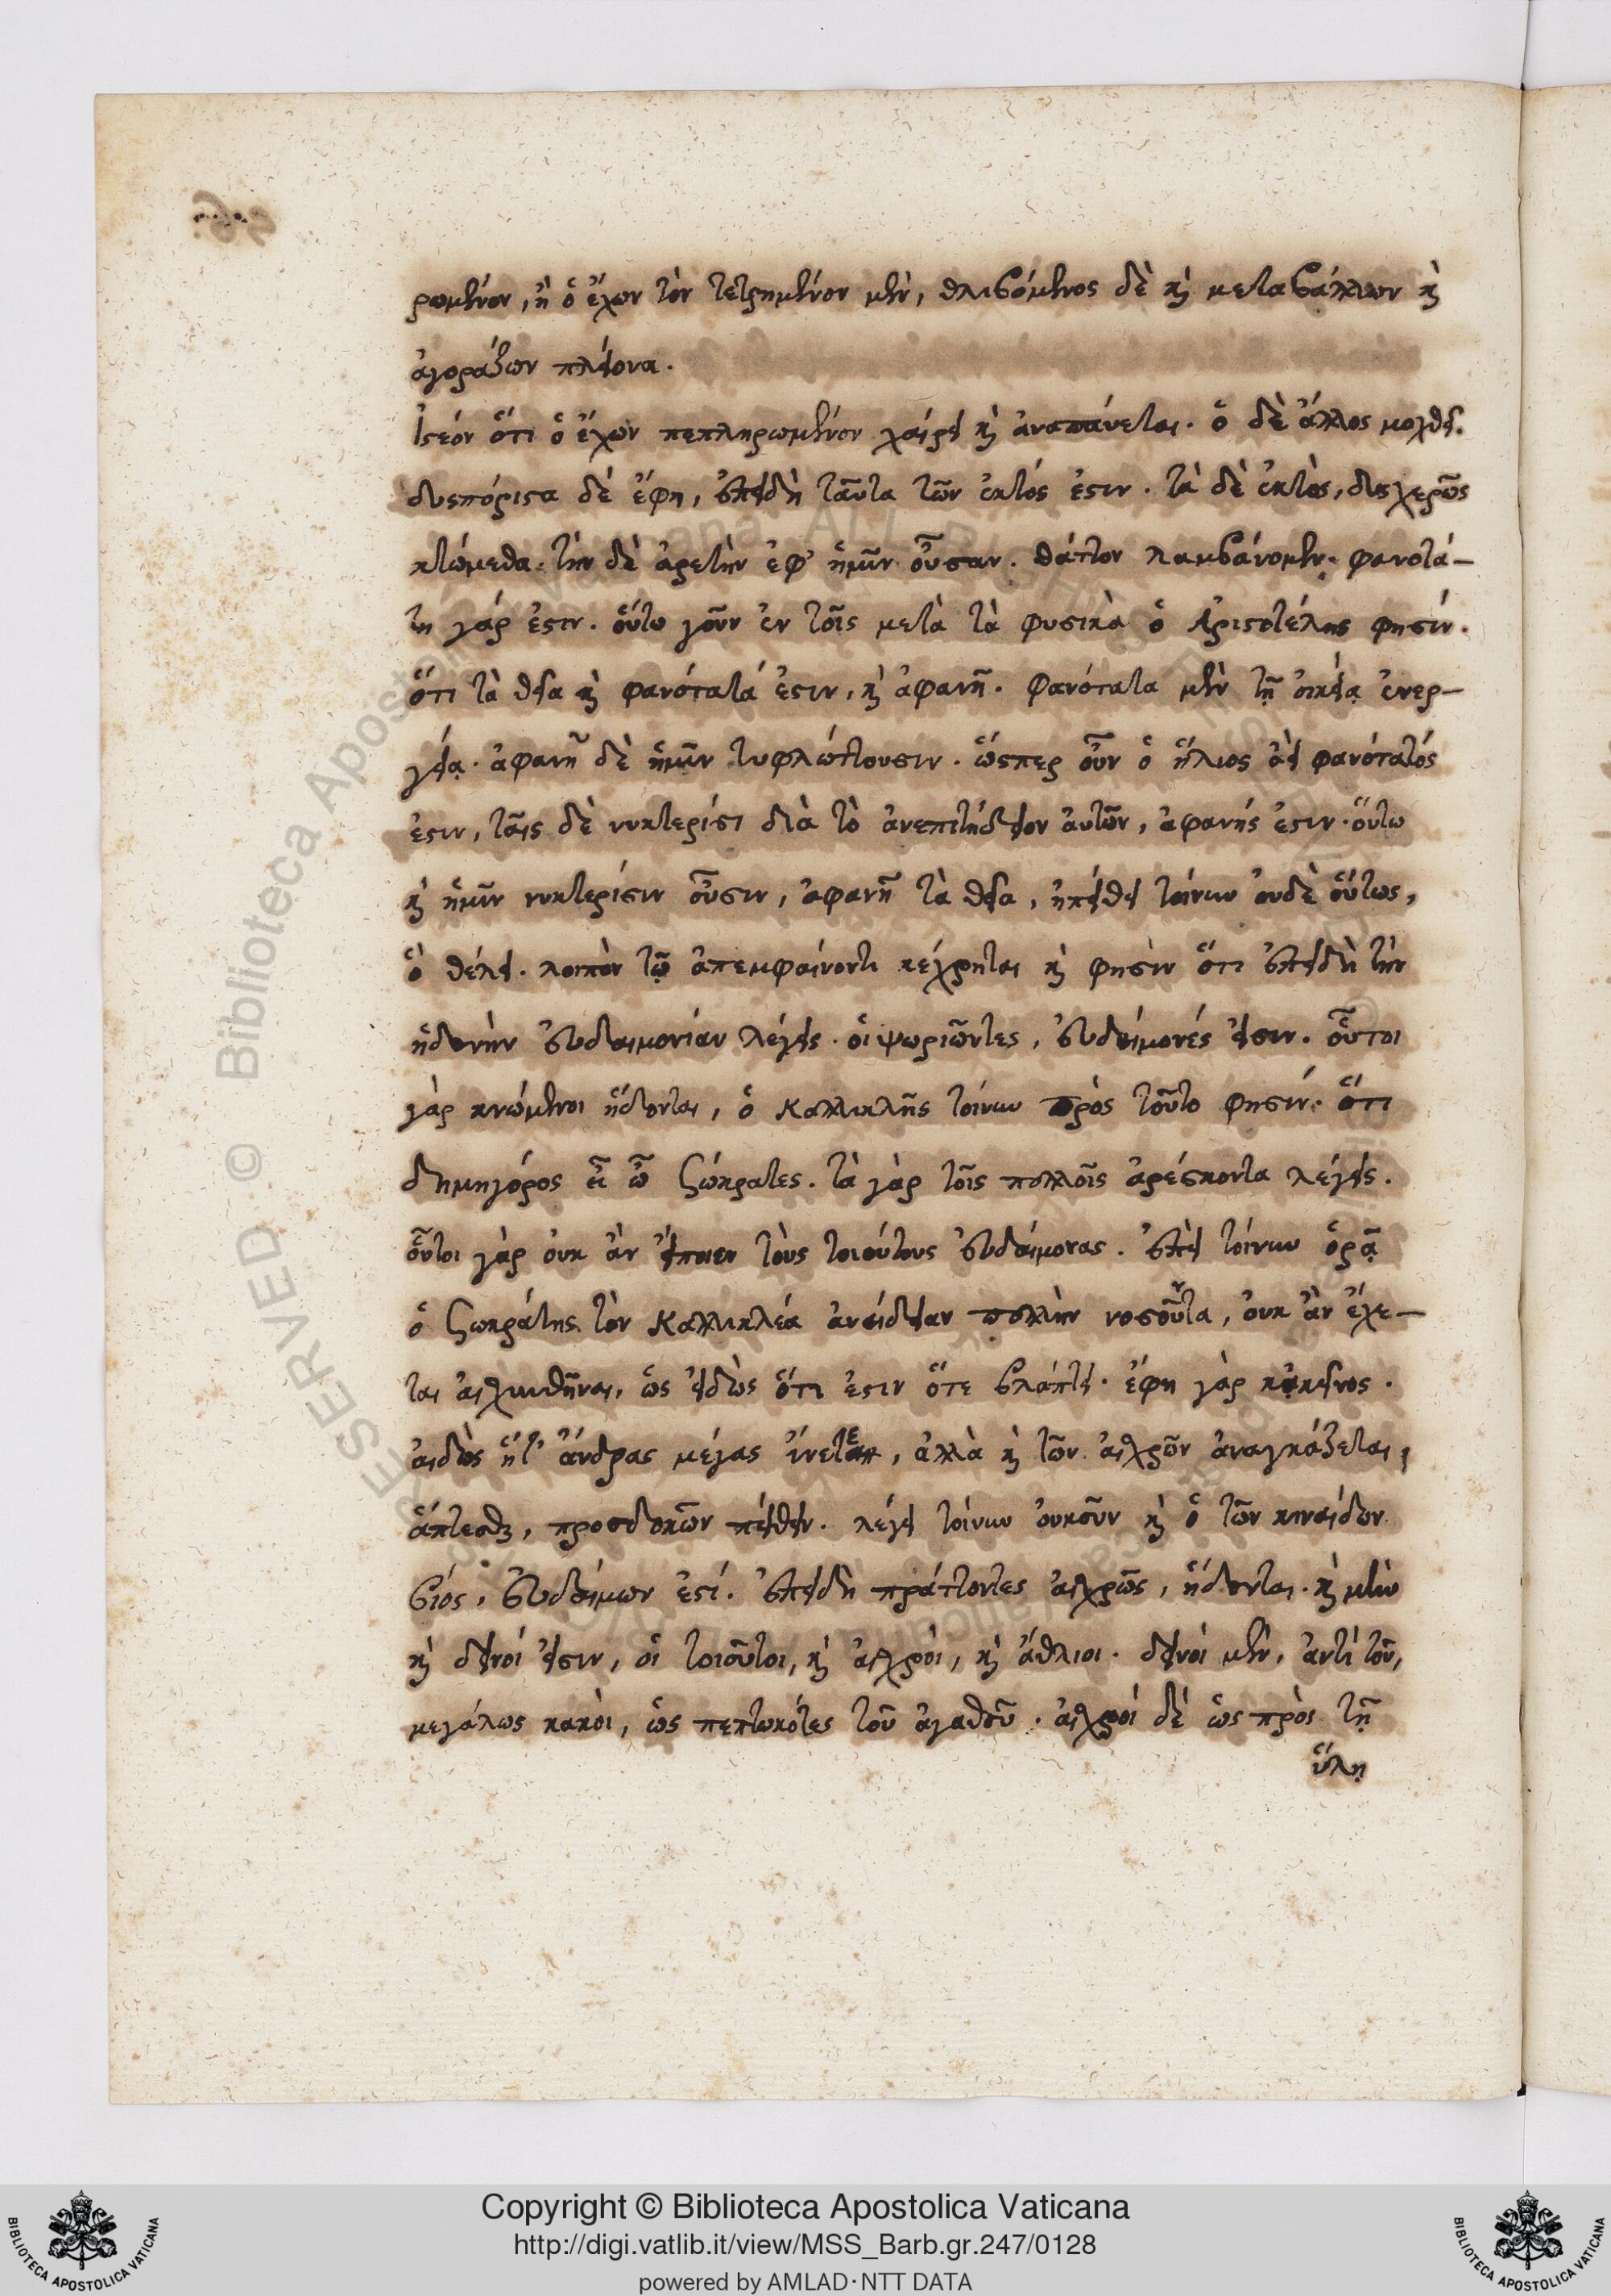 ρωμένον, ἢ ὁ ἔχων τὸν τετρημένον μὲν, θλιβόμενος δὲ καὶ μεταβάλλων καὶ
ἀγοράζων πλείονα.
Ἰστέον ὅτι ὁ ἔχων πεπληρωμένον χαίρει καὶ ἀναπάυεται. ὁ δὲ ἄλλος μοχθεῖ.
δυσπόριστα δὲ ἔφη, ἐπειδὴ ταῦτα τῶν ἐκτός ἐστιν. τὰ δὲ ἐκτὸς, δυσχερῶς
κτώμεθα. τὴν δὲ ἀρετὴν ἐφ' ἡμῖν οὖσαν. θάττον λαμβάνομεν. φανοτά-
τη γάρ ἐστιν. οὕτω γοῦν ἐν τοῖς μετὰ τὰ φυσικὰ ὁ Ἀριστοτέλης φησίν.
ὅτι τὰ θεῖα καὶ φανότατά ἐστιν, καὶ ἀφανῆ. φανότατα μὲν τῇ οἰκείᾳ ἐνερ-
γείᾳ. ἀφανῆ δὲ ἡμῖν τυφλώττουσιν. ὥσπερ οὖν ὁ ἥλιος ἀεὶ φανότατός
ἐστιν, ταῖς δὲ νυκτερίσι διὰ τὸ ἀνεπιτήδειον ἀυτῶν, ἀφανής ἐστιν. οὕτω
καὶ ἡμῖν νυκτερίσιν οὖσιν, ἀφανῆ τὰ θεῖα, ἠπείθει τοίνυν ὀυδὲ οὕτως,
ὁ θέλει. λοιπὸν τῷ ἀπεμφαίνοντι κέχρηται καὶ φησὶν ὅτι ἐπειδὴ τὴν
ἡδονὴν ἐυδαιμονίαν λέγεις. ὁι ψωριῶντες, ἐυδαίμονές ἐισιν. οὗτοι
γὰρ κνώμενοι ἥδονται, ὁ Καλλικλῆς τοίνυν πρὸς τοῦτο φησίν. ὅτι
δημηγόρος εἶ ὦ Σώκρατες. τὰ γὰρ τοῖς πολλοῖς ἀρέσκοντα λέγεις.
οὗτοι γὰρ ὀυκ ἂν ἔιποιεν τοὺς τοιούτους ἐυδαίμονας. ἐπεὶ τοίνυν ὁρᾷ
ὁ Σωκράτης τὸν Καλλικλέα ἀναίδειαν πολλὴν νοσοῦντα, ὀυκ ἂν ἔχε-
ται ἀισχυνθῆναι, ὡς ἐιδὼς ὅτι ἐστιν ὅτε βλάπτει. ἔφη γὰρ κἀκεῖνος.
ἀιδὼς ἥτ' ἄνδρας μέγας ἴνεται, ἀλλὰ καὶ τῶν ἀισχρῶν ἀναγκάζεται,
ἅπτεσθαι, προσδοκῶν πείθειν. λέγει τοίνυν ὀυκοῦν καὶ ὁ τῶν κιναίδων
βίος, ἐυδαίμων ἐστί. ἐπειδὴ πράττοντες ἀισχρῶς, ἥδονται. καὶ μὴν
καὶ δεινοί ἐισιν, ὁι τοιοῦτοι, καὶ ἀισχρὸι, καὶ ἄθλιοι. δεινοὶ μὲν, ἀντὶ τοῦ,
μεγάλως κακὸι, ὡς πεπτωκότες τοῦ ἀγαθοῦ. ἀισχροὶ δὲ ὡς πρὸς τῇ
ὕλῃ
Copyright © Biblioteca Apostolica Vaticana
http://digi.vatlib.it/view/MSS_Barb.gr.247/0128
powered by AMLAD·NTT DATA